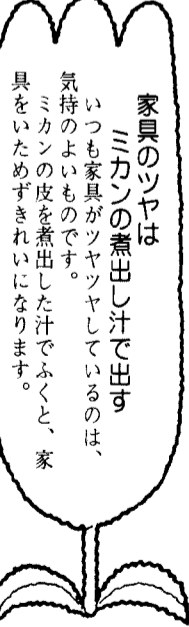 家具のツヤは
ミカンの煮出し汁で出す
いつも家具がツヤツヤしているのは、
気持のよいものです。
ミカンの皮を煮出した汁でふくと、家
具をいためずきれいになります。